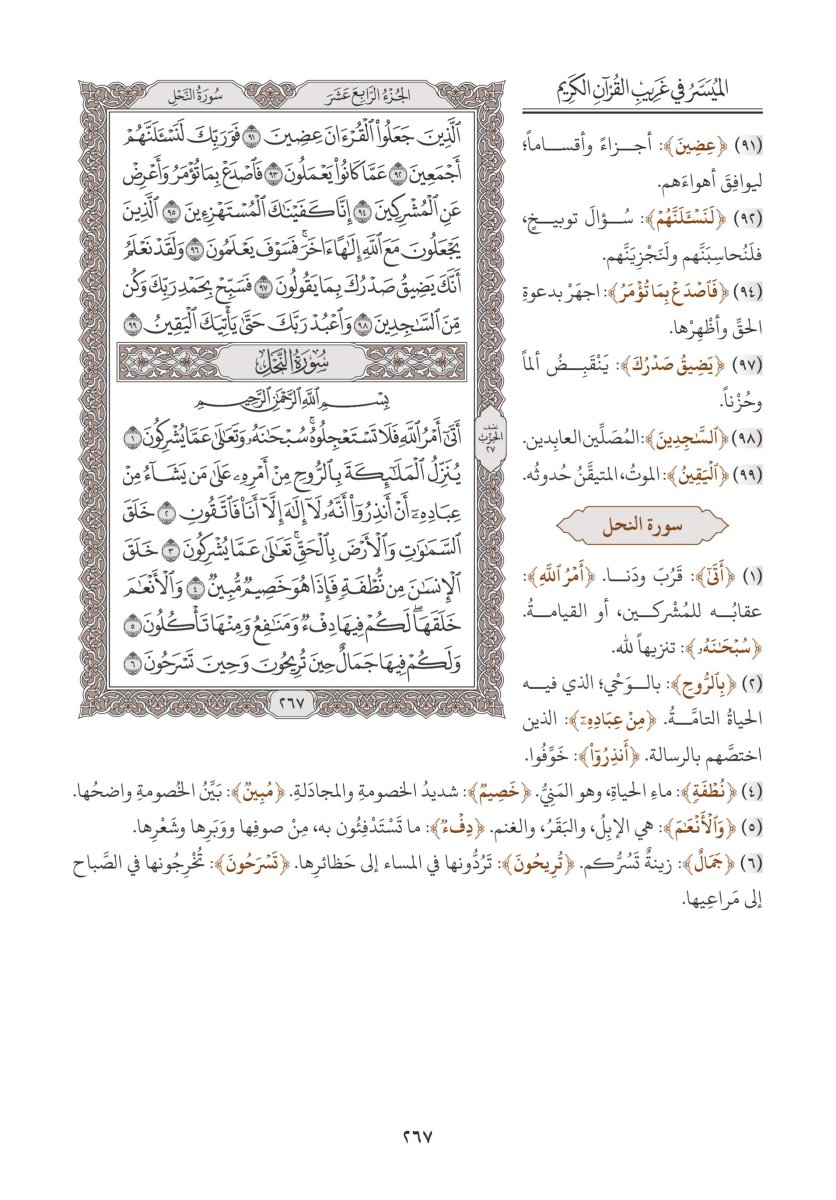 الميسر في غريب القرآن الكريم
(٩١) ﴿عِضِينَ﴾: أجزاءً وأقساماً؛
ليوافِقَ أهواءَهم.
(٩٢) ﴿لَنَسْـَٔلَنَّهُمْ﴾: سُؤالَ توبيخٍ،
فلَنُحاسِبَنَّهم ولَنَجْزِيَنَّهم.
(٩٤) ﴿فَٱصْدَعْ بِمَا تُؤْمَرُ﴾: اجهَرْ بدعوةِ
الحقِّ وأظهِرْها.
(٩٧) ﴿يَضِيقُ صَدْرُكَ﴾: يَنْقَبِضُ ألماً
وحُزْناً.
(٩٨) ﴿ٱلسَّٰجِدِينَ﴾: المُصَلِّين العابِدين.
(٩٩) ﴿ٱلْيَقِينُ﴾: الموتُ، المتيقَّنُ حُدوثُه.
سورة النحل
(١) ﴿أَتَىٰٓ﴾: قَرُبَ ودَنا. ﴿أَمْرُ ٱللَّهِ﴾:
عقابُه للمُشْركين، أو القيامةُ.
﴿سُبْحَٰنَهُۥ﴾: تنزيهاً لله.
(٢) ﴿بِٱلرُّوحِ﴾: بالوَحْيِ؛ الذي فيه
الحياةُ التامَّةُ. ﴿مِنْ عِبَادِهِۦٓ﴾: الذين
اختصَّهم بالرسالة. ﴿أَنذِرُوٓا۟﴾: خَوِّفُوا.
(٤) ﴿نُّطْفَةٍ﴾: ماءِ الحياةِ، وهو المَنِيُّ. ﴿خَصِيمٌ﴾: شديدُ الخصومةِ والمجادَلةِ. ﴿مُّبِينٌ﴾: بَيِّنُ الخُصومةِ واضحُها.
(٥) ﴿وَٱلْأَنْعَٰمَ﴾: هي الإبِلُ، والبَقَرُ، والغنم. ﴿دِفْءٌ﴾: ما تَسْتَدْفِئُون به، مِنْ صوفِها ووَبَرِها وشَعْرِها.
(٦) ﴿جَمَالٌ﴾: زينةٌ تَسُرُّكم. ﴿تُرِيحُونَ﴾: تَرُدُّونها في المساء إلى حَظائرِها. ﴿تَسْرَحُونَ﴾: تُخْرِجُونها في الصَّباح
إلى مَراعِيها.
الجُزْءُ الرَّابِعَ عَشَرَ
سُورَةُ النَّحْلِ
ٱلَّذِينَ جَعَلُوا۟ ٱلْقُرْءَانَ عِضِينَ ٩١ فَوَرَبِّكَ لَنَسْـَٔلَنَّهُمْ
أَجْمَعِينَ ٩٢ عَمَّا كَانُوا۟ يَعْمَلُونَ ٩٣ فَٱصْدَعْ بِمَا تُؤْمَرُ وَأَعْرِضْ
عَنِ ٱلْمُشْرِكِينَ ٩٤ إِنَّا كَفَيْنَٰكَ ٱلْمُسْتَهْزِءِينَ ٩٥ ٱلَّذِينَ
يَجْعَلُونَ مَعَ ٱللَّهِ إِلَٰهًا ءَاخَرَ ۚ فَسَوْفَ يَعْلَمُونَ ٩٦ وَلَقَدْ نَعْلَمُ
أَنَّكَ يَضِيقُ صَدْرُكَ بِمَا يَقُولُونَ ٩٧ فَسَبِّحْ بِحَمْدِ رَبِّكَ وَكُن
مِّنَ ٱلسَّٰجِدِينَ ٩٨ وَٱعْبُدْ رَبَّكَ حَتَّىٰ يَأْتِيَكَ ٱلْيَقِينُ ٩٩
سُورَةُ النَّحْلِ
بِسْمِ ٱللَّهِ ٱلرَّحْمَٰنِ ٱلرَّحِيمِ
أَتَىٰٓ أَمْرُ ٱللَّهِ فَلَا تَسْتَعْجِلُوهُ ۚ سُبْحَٰنَهُۥ وَتَعَٰلَىٰ عَمَّا يُشْرِكُونَ ١
يُنَزِّلُ ٱلْمَلَٰٓئِكَةَ بِٱلرُّوحِ مِنْ أَمْرِهِۦ عَلَىٰ مَن يَشَآءُ مِنْ
عِبَادِهِۦٓ أَنْ أَنذِرُوٓا۟ أَنَّهُۥ لَآ إِلَٰهَ إِلَّآ أَنَا۠ فَٱتَّقُونِ ٢ خَلَقَ
ٱلسَّمَٰوَٰتِ وَٱلْأَرْضَ بِٱلْحَقِّ ۚ تَعَٰلَىٰ عَمَّا يُشْرِكُونَ ٣ خَلَقَ
ٱلْإِنسَٰنَ مِن نُّطْفَةٍ فَإِذَا هُوَ خَصِيمٌ مُّبِينٌ ٤ وَٱلْأَنْعَٰمَ
خَلَقَهَا ۗ لَكُمْ فِيهَا دِفْءٌ وَمَنَٰفِعُ وَمِنْهَا تَأْكُلُونَ ٥
وَلَكُمْ فِيهَا جَمَالٌ حِينَ تُرِيحُونَ وَحِينَ تَسْرَحُونَ ٦
نصف
الحزب
٢٧
٢٦٧
٢٦٧